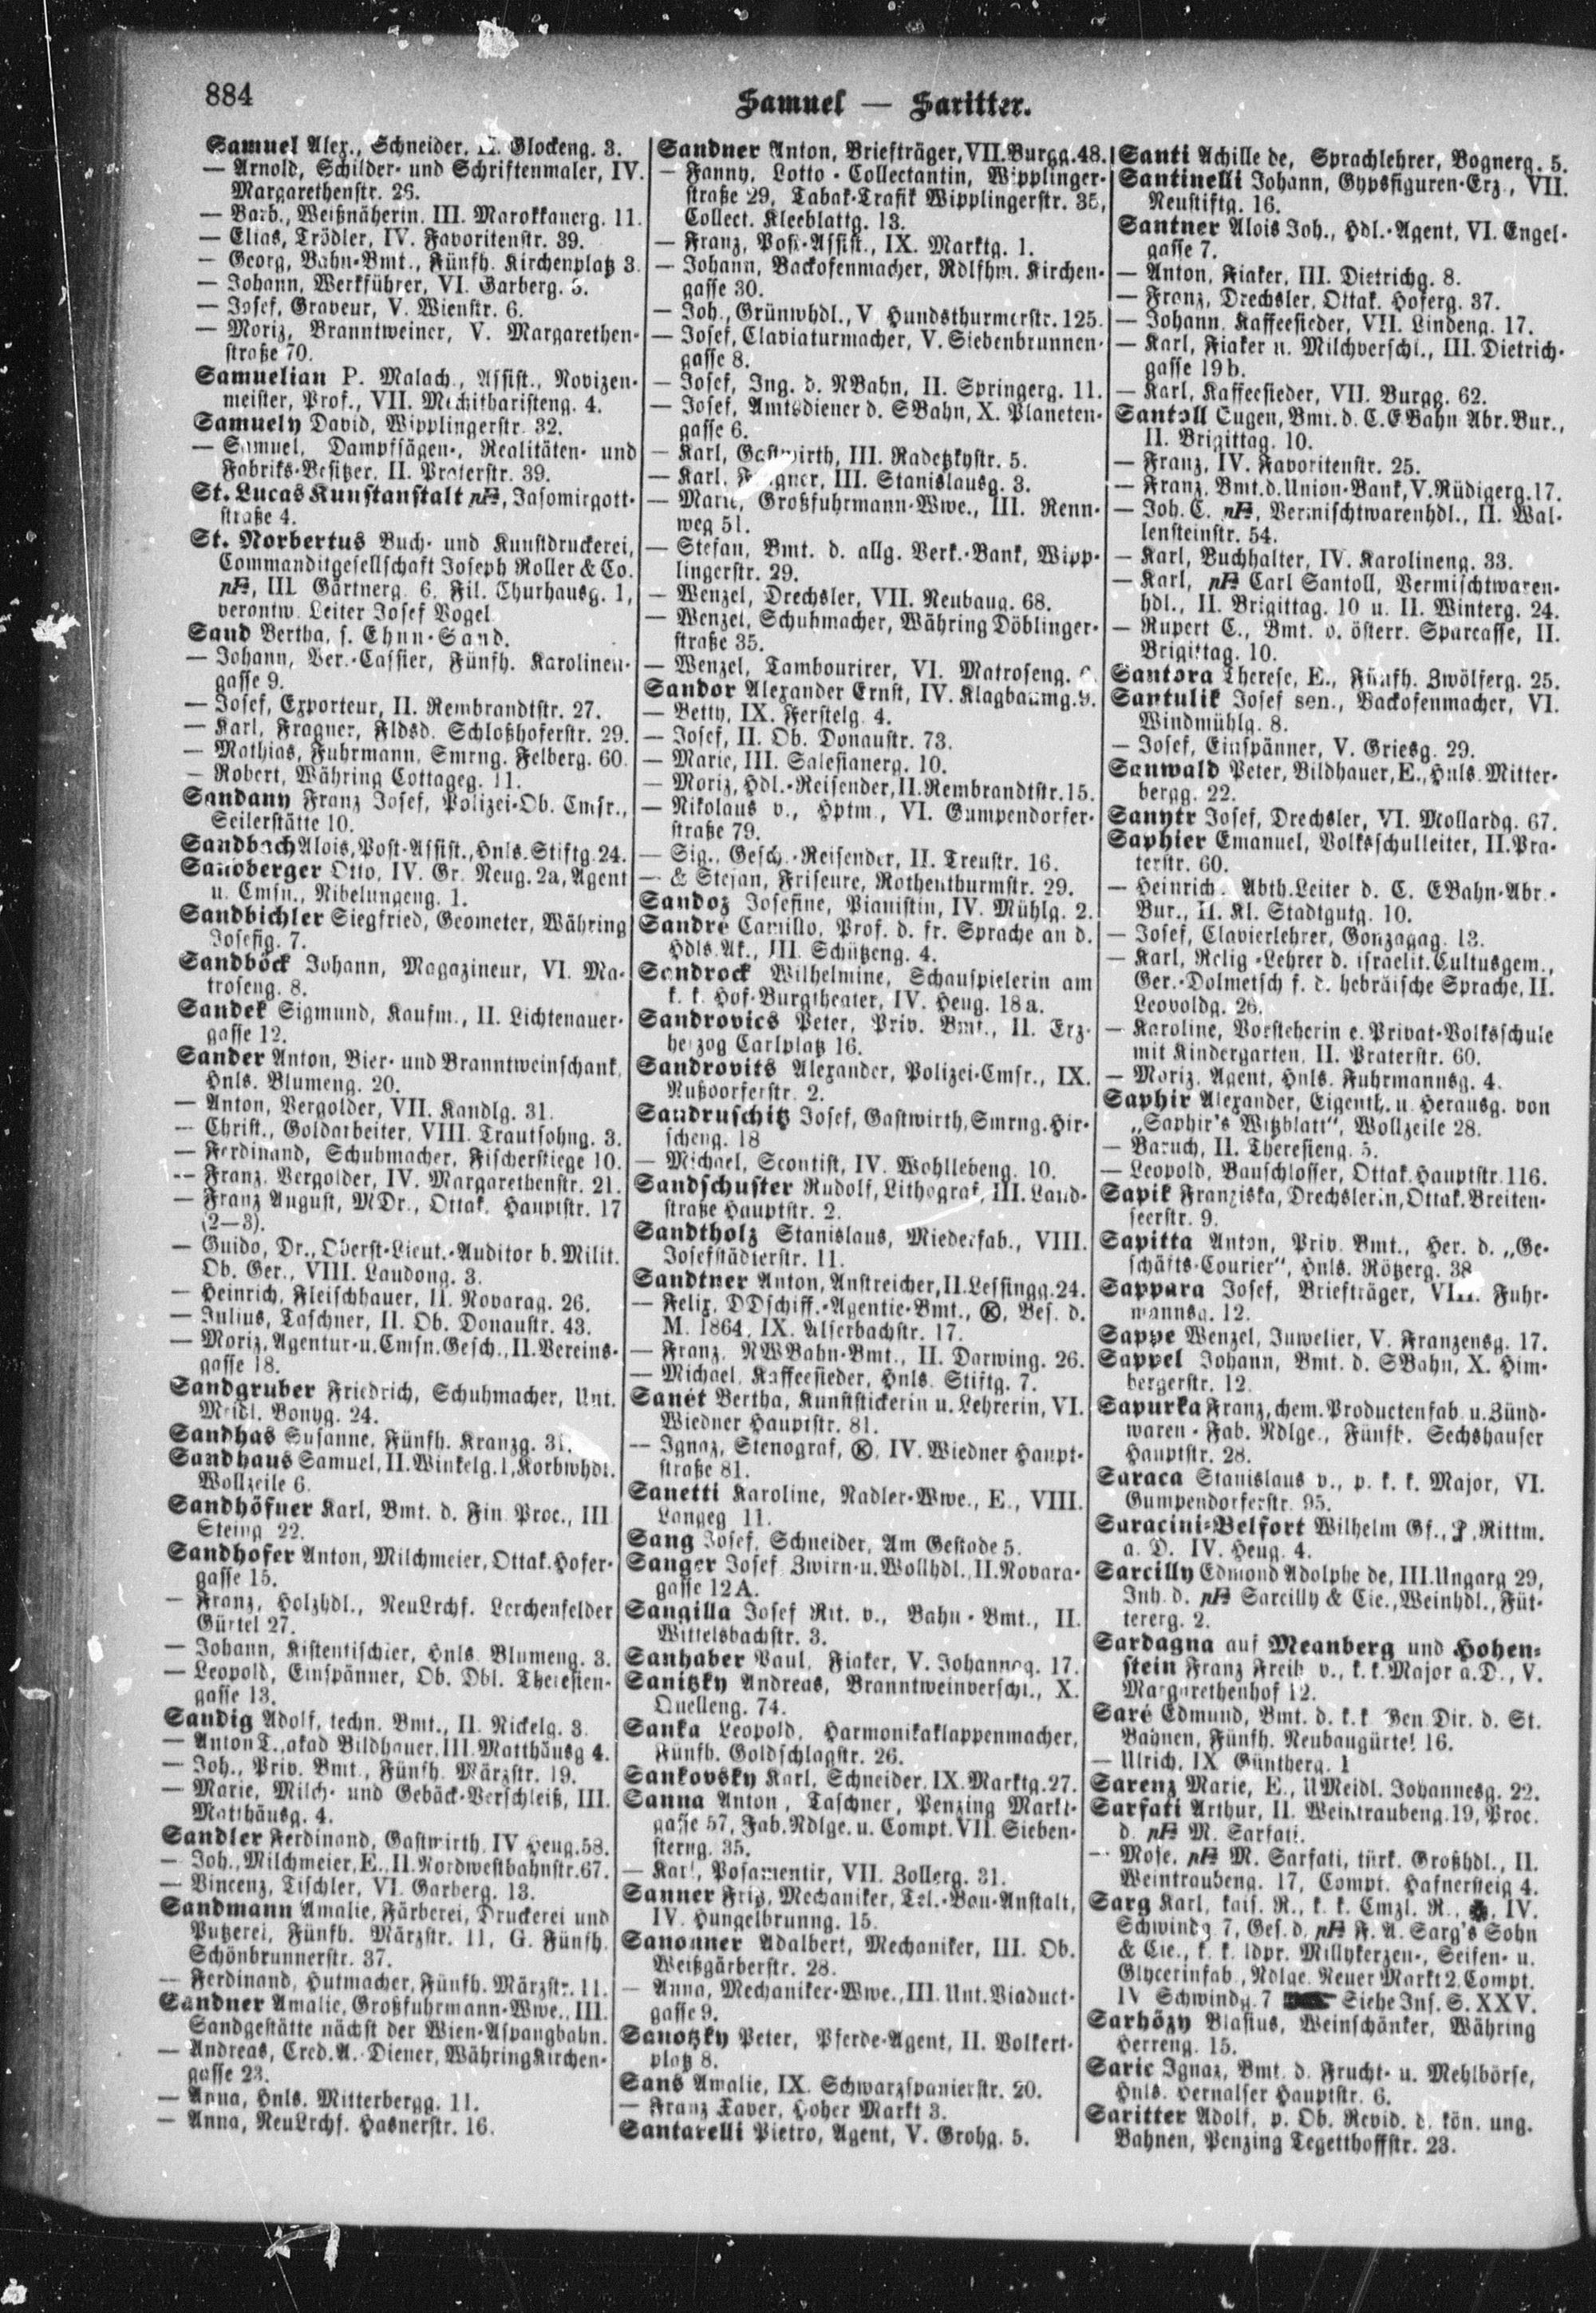 884
Samuel — Saritter.
Samuel Alex., Schneider, II. Glockeng. 3.
— Arnold, Schilder- und Schriftenmaler, IV.
Margarethenstr. 26.
— Barb., Weißnäherin, III. Marokkanerg. 11.
— Elias, Trödler, IV. Favoritenstr. 39.
— Georg, Bahn-Bmt., Fünfh. Kirchenplatz 3.
— Johann, Werkführer, VI. Garberg. 5.
— Josef, Graveur, V. Wienstr. 6.
— Moriz, Branntweiner, V. Margarethen-
straße 70.
Samuelian P. Malach., Assist., Novizen-
meister, Prof., VII. Mechitharisteng. 4.
Samuely David, Wipplingerstr. 32.
— Samuel, Dampfsägen-, Realitäten- und
Fabriks-Besitzer, II. Praterstr. 39.
St. Lucas Kunstanstalt pH, Jasomirgott-
straße 4.
St. Norbertus Buch- und Kunstdruckerei,
Commanditgesellschaft Joseph Roller & Co.
pH, III. Gärtnerg. 6, Fil. Churhausg. 1,
verantw. Leiter Josef Vogel.
Sand Bertha, s. Ehnn-Sand.
— Johann, Ver.-Cassier, Fünfh. Karolinen-
gasse 9.
— Josef, Exporteur, II. Rembrandtstr. 27.
— Karl, Fragner, Fldsd. Schloßhoferstr. 29.
— Mathias, Fuhrmann, Smrng. Felberg. 60.
— Robert, Währing Cottageg. 11.
Sandany Franz Josef, Polizei-Ob. Cmsr.,
Seilerstätte 10.
Sandbach Alois, Post-Assist., Hnls. Stiftg. 24.
Sandberger Otto, IV. Gr. Neug. 2a, Agent
u. Cmsn., Nibelungeng. 1.
Sandbichler Siegfried, Geometer, Währing
Josefig. 7.
Sandböck Johann, Magazineur, VI. Ma-
troseng. 8.
Sandek Sigmund, Kaufm., II. Lichtenauer-
gasse 12.
Sander Anton, Bier- und Branntweinschank,
Hnls. Blumeng. 20.
— Anton, Vergolder, VII. Kandlg. 31.
— Christ., Goldarbeiter, VIII. Trautsohng. 3.
— Ferdinand, Schuhmacher, Fischerstiege 10.
— Franz, Vergolder, IV. Margarethenstr. 21.
— Franz August, MDr., Ottak. Hauptstr. 17
(2—3).
— Guido, Dr., Oberst-Lieut.-Auditor b. Milit.
Ob. Ger., VIII. Laudong. 3.
— Heinrich, Fleischhauer, II. Novarag. 26.
— Julius, Taschner, II. Ob. Donaustr. 43.
— Moriz, Agentur-u. Cmsn. Gesch., II. Vereins-
gasse 18.
Sandgruber Friedrich, Schuhmacher, Unt.
Meidl. Bonyg. 24.
Sandhas Susanne, Fünfh. Kranzg. 31.
Sandhaus Samuel, II. Winkelg. 1, Korbwhdl.
Wollzeile 6.
Sandhöfner Karl, Bmt. d. Fin. Proc., III.
Steing. 22.
Sandhofer Anton, Milchmeier, Ottak. Hofer-
gasse 15.
— Franz, Holzhdl., NeuLrchf. Lerchenfelder
Gürtel 27.
— Johann, Kistentischler, Hnls. Blumeng. 3.
— Leopold, Einspänner, Ob. Dbl. Theresien-
gasse 13.
Sandig Adolf, techn. Bmt., II. Nickelg. 3.
— Anton T., akad. Bildhauer, III. Matthäusg. 4.
— Joh., Priv. Bmt., Fünfh. Märzstr. 19.
— Marie, Milch- und Gebäck-Verschleiß, III.
Matthäusg. 4.
Sandler Ferdinand, Gastwirth, IV. Heug. 58.
— Joh., Milchmeier, E., II. Nordwestbahnstr. 67.
— Vincenz, Tischler, VI. Garberg. 13.
Sandmann Amalie, Färberei, Druckerei und
Putzerei, Fünfh. Märzstr. 11, G. Fünfh.
Schönbrunnerstr. 37.
— Ferdinand, Hutmacher, Fünfh. Märzstr. 11.
Sandner Amalie, Großfuhrmann-Wwe., III.
Sandgestätte nächst der Wien-Aspangbahn.
— Andreas, Cred. A.-Diener, Währing Kirchen-
gasse 23.
— Anna, Hnls. Mitterbergg. 11.
— Anna, NeuLrchf. Hasnerstr. 16.
Sandner Anton, Briefträger, VII. Burgg. 48.
— Fanny, Lotto-Collectantin, Wipplinger-
straße 29, Tabak-Trafik Wipplingerstr. 35,
Collect. Kleeblattg. 13.
— Franz, Post-Assist., IX. Marktg. 1.
— Johann, Backofenmacher, Rdlfhm. Kirchen-
gasse 30.
— Joh., Grünwhdl., V. Hundsthurmerstr. 125.
— Josef, Claviaturmacher, V. Siebenbrunnen-
gasse 8.
— Josef, Ing. d. NBahn, II. Springerg. 11.
— Josef, Amtsdiener d. SBahn, X. Planeten-
gasse 6.
— Karl, Gastwirth, III. Radetzkystr. 5.
— Karl, Fragner, III. Stanislausg. 3.
— Marie, Großfuhrmann-Wwe., III. Renn-
weg 51.
— Stefan, Bmt. d. allg. Verk.-Bank, Wipp-
lingerstr. 29.
— Wenzel, Drechsler, VII. Neubaug. 68.
— Wenzel, Schuhmacher, Währing Döblinger-
straße 35.
— Wenzel, Tambourirer, VI. Matroseng.
Sandor Alexander Ernst, IV. Klagbaumg. 9.
— Betty, IX. Ferstelg. 4.
— Josef, II. Ob. Donaustr. 73.
— Marie, III. Salesianerg. 10.
— Moriz, Hdl.-Reisender, II. Rembrandtstr. 15.
— Nikolaus v., Hptm., VI. Gumpendorfer-
straße 79.
— Sig., Gesch.-Reisender, II. Treustr. 16.
— & Stefan, Friseure, Rothenthurmstr. 29.
Sandoz Josefine, Pianistin, IV. Mühlg. 2.
Sandré Camillo, Prof. d. fr. Sprache an d.
Hdls. Ak., III. Schützeng. 4.
Sandrock Wilhelmine, Schauspielerin am
k. k. Hof-Burgtheater, IV. Heug. 18a.
Sandrovics Peter, Priv. Bmt., II. Erz-
herzog Carlplatz 16.
Sandrovits Alexander, Polizei-Cmsr., IX.
Nußdorferstr. 2.
Sandruschitz Josef, Gastwirth, Smrng. Hir-
scheng. 18
— Michael, Scontist, IV. Wohllebeng. 10.
Sandschuster Rudolf, Lithograf, III. Land-
straße Hauptstr. 2.
Sandtholz Stanislaus, Miederfab., VIII.
Josefstädterstr. 11.
Sandtner Anton, Anstreicher, II. Lessingg. 24.
— Felix, DDschiff.-Agentie-Bmt., Ⓚ, Bes. d.
M. 1864, IX. Alserbachstr. 17.
— Franz, NWBahn-Bmt., II. Darwing. 26.
— Michael, Kaffeesieder, Hnls. Stiftg. 7.
Sanét Bertha, Kunststickerin u. Lehrerin, VI.
Wiedner Hauptstr. 81.
— Ignaz, Stenograf, Ⓚ, IV. Wiedner Haupt-
straße 81.
Sanetti Karoline, Nadler-Wwe., E., VIII.
Langeg. 11.
Sang Josef, Schneider, Am Gestade 5.
Sanger Josef, Zwirn-u. Wollhdl., II. Novara-
gasse 12A.
Sangilla Josef Rit. v., Bahn-Bmt., II.
Wittelsbachstr. 3.
Sanhaber Paul, Fiaker, V. Johannag. 17.
Sanitzky Andreas, Branntweinverschl., X.
Quelleng. 74.
Sanka Leopold, Harmonikaklappenmacher,
Fünfh. Goldschlagstr. 26.
Sankovsky Karl, Schneider, IX. Marktg. 27.
Sanna Anton, Taschner, Penzing Markt-
gasse 57, Fab. Ndlge. u. Compt. VII. Sieben-
sterng. 35.
— Karl, Posamentir, VII. Zollerg. 31.
Sanner Fritz, Mechaniker, Tel.-Bau-Anstalt,
IV. Hungelbrunng. 15.
Sanonner Adalbert, Mechaniker, III. Ob.
Weißgärberstr. 28.
— Anna, Mechaniker-Wwe., III. Unt. Viaduct-
gasse 9.
Sanotzky Peter, Pferde-Agent, II. Volkert-
platz 8.
Sans Amalie, IX. Schwarzspanierstr. 20.
— Franz Xaver, Hoher Markt 3.
Santarelli Pietro, Agent, V. Grohg. 5.
Santi Achille de, Sprachlehrer, Bognerg. 5.
Santinelli Johann, Gypsfiguren-Erz., VII.
Neustiftg. 16.
Santner Alois Joh., Hdl.-Agent, VI. Engel-
gasse 7.
— Anton, Fiaker, III. Dietrichg. 8.
— Franz, Drechsler, Ottak. Hoferg. 37.
— Johann, Kaffeesieder, VII. Lindeng. 17.
— Karl, Fiaker u. Milchverschl., III. Dietrich-
gasse 19b.
— Karl, Kaffeesieder, VII. Burgg. 62.
Santoll Eugen, Bmt. d. C. EBahn Abr. Bur.,
II. Brigittag. 10.
— Franz, IV. Favoritenstr. 25.
— Franz, Bmt. d. Union-Bank, V. Rüdigerg. 17.
— Joh. C. pH, Vermischtwarenhdl., II. Wal-
lensteinstr. 54.
— Karl, Buchhalter, IV. Karolineng. 33.
— Karl, pH Carl Santoll, Vermischtwaren-
hdl., II. Brigittag. 10 u. II. Winterg. 24.
— Rupert C., Bmt. d. österr. Sparcasse, II.
Brigittag. 10.
Santora Therese, E., Fünfh. Zwölferg. 25.
Santulik Josef sen., Backofenmacher, VI.
Windmühlg. 8.
— Josef, Einspänner, V. Griesg. 29.
Sanwald Peter, Bildhauer, E., Hnls. Mitter-
bergg. 22.
Sanytr Josef, Drechsler, VI. Mollardg. 67.
Saphier Emanuel, Volksschulleiter, II. Pra-
terstr. 60.
— Heinrich, Abth. Leiter d. C. EBahn-Abr.-
Bur., II. Kl. Stadtgutg. 10.
— Josef, Clavierlehrer, Gonzagag. 13.
— Karl, Relig.-Lehrer d. israelit. Cultusgem.,
Ger.-Dolmetsch f. d. hebräische Sprache, II.
Leopoldg. 26.
— Karoline, Vorsteherin e. Privat-Volksschule
mit Kindergarten, II. Praterstr. 60.
— Moriz, Agent, Hnls. Fuhrmannsg. 4.
Saphir Alexander, Eigenth. u. Herausg. von
„Saphir's Witzblatt“, Wollzeile 28.
— Baruch, II. Theresieng. 5.
— Leopold, Bauschlosser, Ottak. Hauptstr. 116.
Sapik Franziska, Drechslerin, Ottak. Breiten-
seerstr. 9.
Sapitta Anton, Priv. Bmt., Her. d. „Ge-
schäfts-Courier“, Hnls. Rötzerg. 38
Sappara Josef, Briefträger, VIII. Fuhr-
mannsg. 12.
Sappe Wenzel, Juwelier, V. Franzensg. 17.
Sappel Johann, Bmt. d. SBahn, X. Him-
bergerstr. 12.
Sapurka Franz, chem. Productenfab. u. Zünd-
waren-Fab. Ndlge., Fünfh. Sechshauser
Hauptstr. 28.
Saraca Stanislaus v., p. k. k. Major, VI.
Gumpendorferstr. 95.
Saracini-Belfort Wilhelm Gf., Rittm.
a. D. IV. Heug. 4.
Sarcilly Edmond Adolphe de, III. Ungarg 29,
Inh. d. pH Sarcilly & Cie., Weinhdl., Füt-
tererg. 2.
Sardagna auf Meanberg und Hohen-
stein Franz Freih. v., k. k. Major a. D., V.
Margarethenhof 12.
Saré Edmund, Bmt. d. k. k. Gen. Dir. d. St.
Bahnen, Fünfh. Neubaugürtel 16.
— Ulrich, IX. Güntherg. 1
Sarenz Marie, E., UMeidl. Johannesg. 22.
Sarfati Arthur, II. Weintraubeng. 19, Proc.
d. pH M. Sarfati.
— Mose, pH M. Sarfati, türk. Großhdl., II.
Weintraubeng. 17, Compt. Hafnersteig 4.
Sarg Karl, kais. R., k. k. Cmzl. R., IV.
Schwindg. 7, Ges. d. pH F. A. Sarg's Sohn
& Cie., k. k. ldpr. Millykerzen-, Seifen- u.
Glycerinfab., Ndlge. Neuer Markt 2, Compt.
IV. Schwindg. 7 Siehe Ins. S. XXV.
Sarhózy Blasius, Weinschänker, Währing
Herreng. 15.
Saric Ignaz, Bmt. d. Frucht- u. Mehlbörse,
Hnls. Hernalser Hauptstr. 6.
Saritter Adolf, p. Ob. Revid. d. kön. ung.
Bahnen, Penzing Tegetthoffstr. 23.